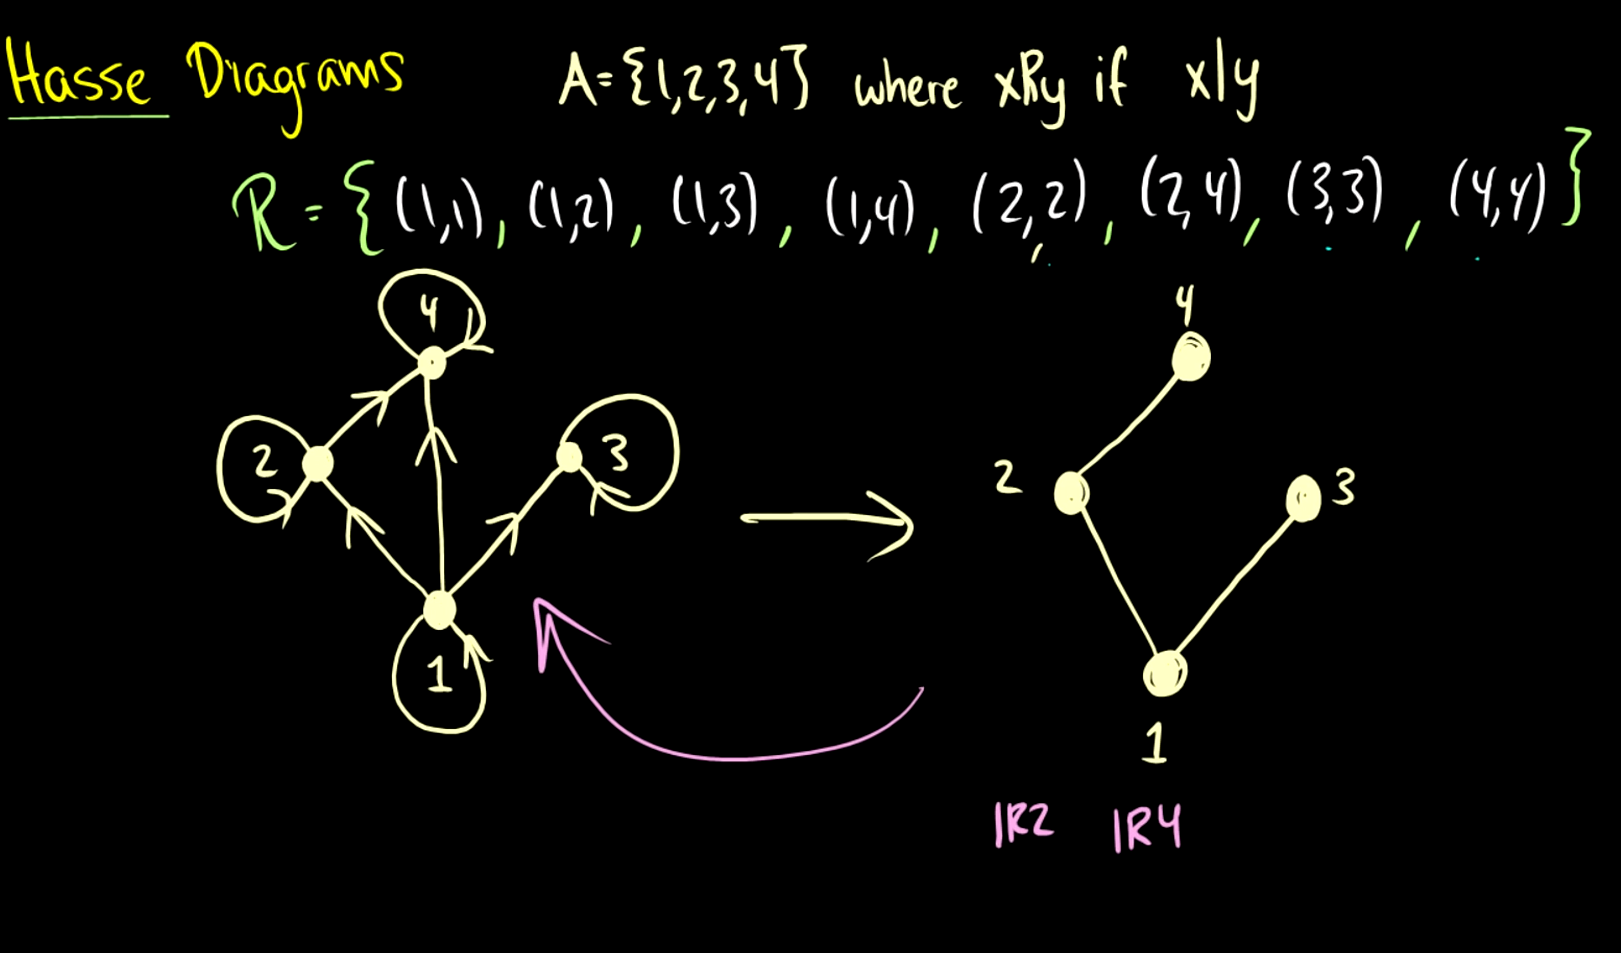 Hasse Diagrams A={1,2,3,4} where xRy if x|y
R={(1,1), (1,2), (1,3), (1,4), (2,2), (2,4), (3,3), (4,4)}
4 4
2 3 2 3
1 1
1R2 1R4